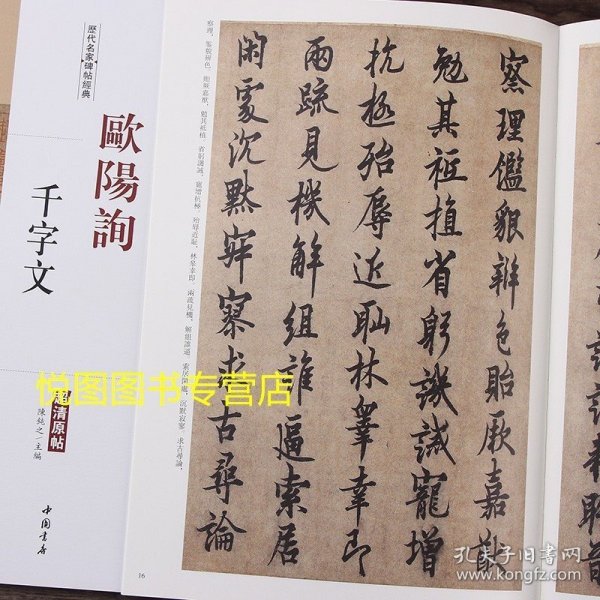 歷代名家碑帖經典
歐陽詢
千字文
超清原帖
陳鈍之/主編
中國書店
察理鑑貌辨色貽厥嘉猷
勉其祗植省躬譏誡寵增
抗極殆辱近耻林皋幸即
兩疏見機解組誰逼索居
閑處沉默寂寥求古尋論
察理，鑒貌辨色，貽厥嘉猷，勉其祗植，省躬譏誡，寵增抗極，殆辱近耻，林皋幸即，兩疏見機，解組誰逼，索居閑處，沉默寂寥，求古尋論，
16
悦图图书专营店
孔夫子旧书网
www.kongfz.com